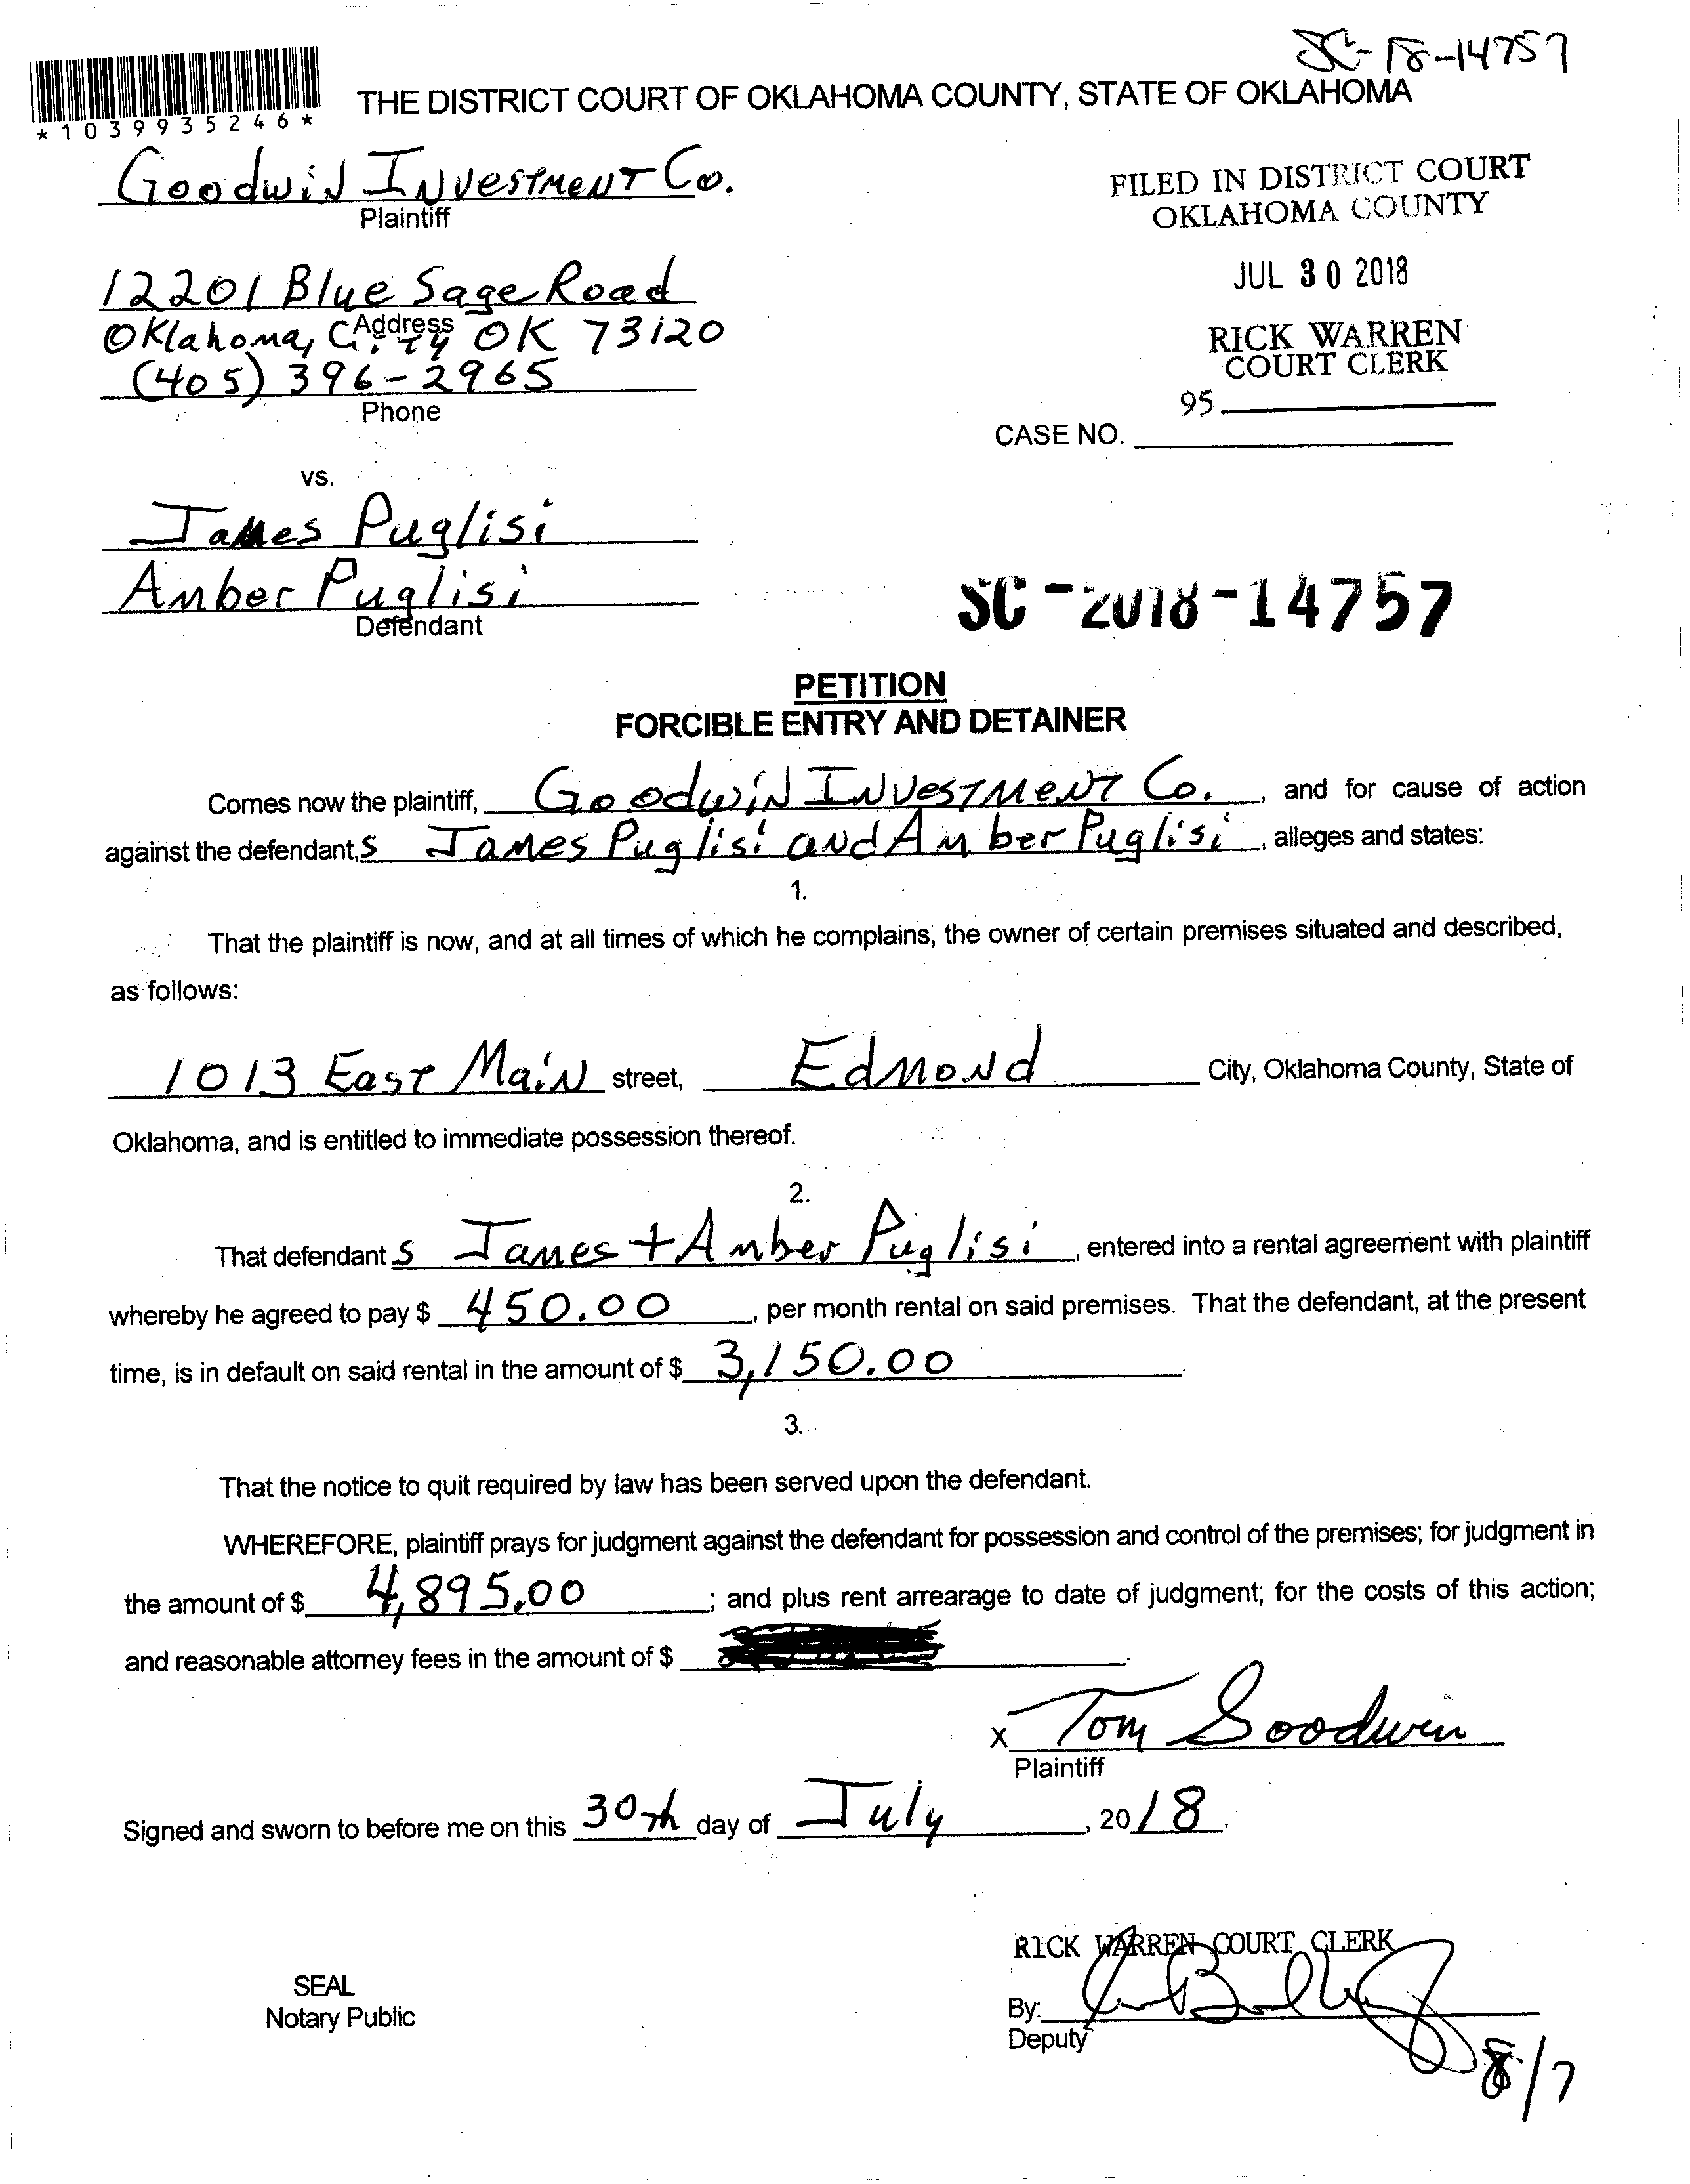 SC-18-14757
THE DISTRICT COURT OF OKLAHOMA COUNTY, STATE OF OKLAHOMA
*1039935246*
Goodwin Investment Co.
Plaintiff
FILED IN DISTRICT COURT
OKLAHOMA COUNTY
JUL 30 2018
RICK WARREN
COURT CLERK
95
CASE NO.
12201 Blue Sage Road
Address
Oklahoma, City OK 73120
(405) 396-2965
Phone
vs.
James Puglisi
Amber Puglisi
Defendant
SC-2018-14757
PETITION
FORCIBLE ENTRY AND DETAINER
Comes now the plaintiff, Goodwin Investment Co., and for cause of action
against the defendant,s James Puglisi and Amber Puglisi, alleges and states:
1.
That the plaintiff is now, and at all times of which he complains, the owner of certain premises situated and described,
as follows:
1013 East Main street, Edmond City, Oklahoma County, State of
Oklahoma, and is entitled to immediate possession thereof.
2.
That defendant s James + Amber Puglisi, entered into a rental agreement with plaintiff
whereby he agreed to pay $ 450.00, per month rental on said premises. That the defendant, at the present
time, is in default on said rental in the amount of $ 3,150.00.
3.
That the notice to quit required by law has been served upon the defendant.
WHEREFORE, plaintiff prays for judgment against the defendant for possession and control of the premises; for judgment in
the amount of $ 4,895.00; and plus rent arrearage to date of judgment; for the costs of this action;
and reasonable attorney fees in the amount of $ .
x Tom Goodwin
Plaintiff
Signed and sworn to before me on this 30th day of July, 2018.
RICK WARREN COURT CLERK
SEAL
Notary Public
By:
Deputy
8/7